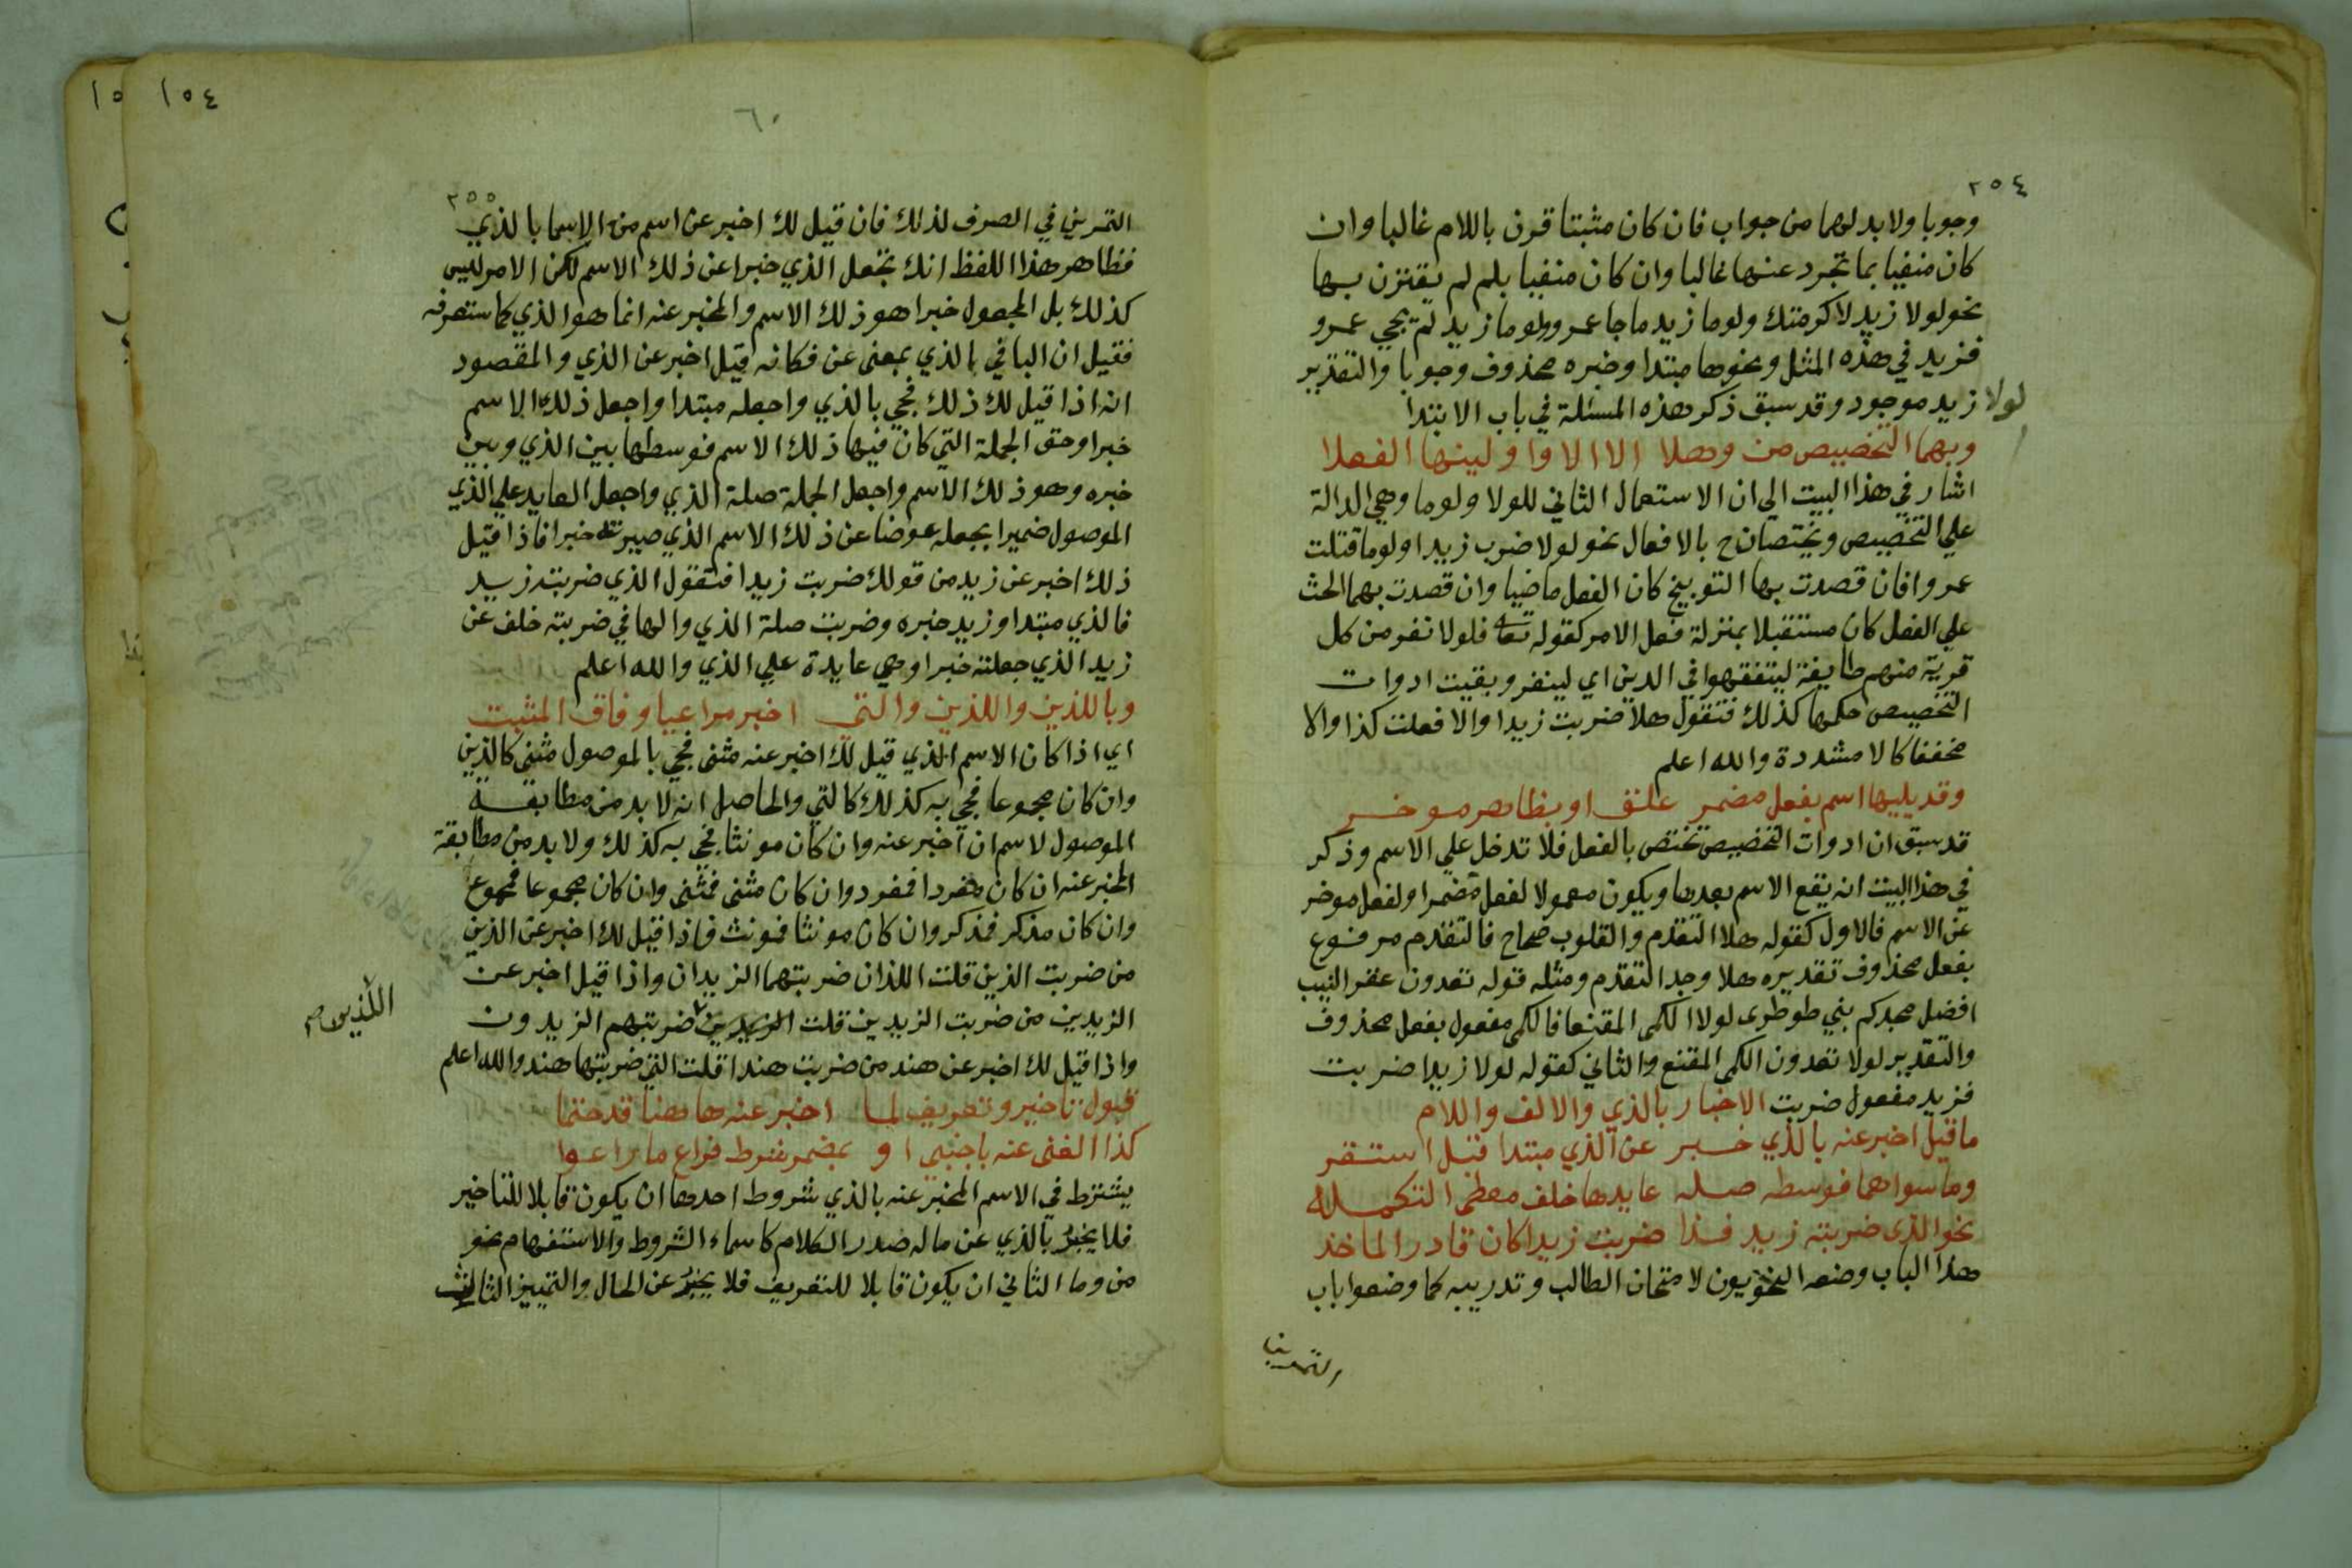 ٢٥٤
وجوبا ولابد لهما من جواب فان كان مثبتا قرن باللام غالبا وان
كان منفيا بما تجرد عنها غالبا وان كان منفيا بلم لم يقترن بها
نحو لولا زيد لاكرمتك ولوما زيد ما جا عمرو ولوما زيد لم يجي عمرو
فزيد في هذه المثل ونحوها مبتدا وخبره محذوف وجوبا والتقدير
لولا زيد موجود وقد سبق ذكر هذه المسئلة في باب الابتدا
وبهما التخصيص من وهلا الا الا وا وليتها الفعلا
اشار في هذا البيت الي ان الاستعمال الثاني للولا ولوما وهي الدالة
علي التخصيص ويختصان ح بالافعال نحو لولا ضرب زيدا ولوما قتلت
عمروا فان قصدت بها التوبيخ كان الفعل ماضيا وان قصدت بهما الحث
علي الفعل كان مستقبلا بمنزلة فعل الامر كقوله تعالى فلولا نفر من كل
قرية منهم طايفة ليتفقهوا في الدين اي لينفر وبقيت ادوات
التخصيص حكمها كذلك فتقول هلا ضربت زيدا والا فعلت كذا والا
مخففا كالا مشددة والله اعلم
وقد يليها اسم بفعل مضمر علق او بظاهر موخر
قد سبق ان ادوات التخصيص تختص بالفعل فلا تدخل علي الاسم وذكر
في هذا البيت انه يقع الاسم بعدها ويكون معمولا لفعل مضمرا ولفعل موخر
عن الاسم فالاول كقوله هلا التقدم والقلوب صحاح فالتقدم مرفوع
بفعل محذوف تقديره هلا وجد التقدم ومثله قوله تعدون عقر النيب
افضل مجدكم بني طوطرى لولا الكمى المقنعا فالكمى مفعول بفعل محذوف
والتقدير لولا تعدون الكمى المقنع والثاني كقوله لولا زيدا ضربت
فزيد مفعول ضربت الاخبار بالذي والالف واللام
ما قيل اخبر عنه بالذي خبر عن الذي مبتدا قبل استقر
وما سواهما فوسطه صله عايدها خلف معطى التكمله
نحو الذى ضربته زيد فذا ضربت زيدا كان فادر الماخذ
هذا الباب وضعه النحويون لامتحان الطالب وتدريبه كما وضعوا باب
التمرين
١٥٤
٦٠
٢٥٥
التمرين في الصرف لذلك فان قيل لك اخبر عن اسم من الاسما بالذي
فظاهر هذا اللفظ انك تجعل الذي خبرا عن ذلك الاسم لكن الامر ليس
كذلك بل المجعول خبرا هو ذلك الاسم والمخبر عنه انما هو الذي كما ستعرفه
فقيل ان البا في بالذي بمعنى عن فكانه قيل اخبر عن الذي والمقصود
انه اذا قيل لك ذلك فجي بالذي واجعله مبتدا واجعل ذلك الاسم
خبرا وحق الجملة التي كان فيها ذلك الاسم فوسطها بين الذي وبين
خبره وهو ذلك الاسم واجعل الجملة صلة الذي واجعل العايد علي الذي
الموصول ضميرا بجعله عوضا عن ذلك الاسم الذي صيرته خبرا فاذا قيل
ذلك اخبر عن زيد من قولك ضربت زيدا فتقول الذي ضربته زيد
فالذي مبتدا وزيد خبره وضربت صلة الذي والها في ضربته خلف عن
زيد الذي جعلته خبرا وهي عايدة علي الذي والله اعلم
وباللذين واللذين والتى اخبر مراعيا وفاق المثبت
اي اذا كان الاسم الذي قيل لك اخبر عنه مثنى فجي بالموصول مثنى كالذين
وان كان مجموعا فجي به كذلك كالتي والحاصل انه لا بد من مطابقة
الموصول لاسم ان اخبر عنه وان كان مونثا فجي به كذلك ولا بد من مطابقة
المخبر عنه ان كان مفردا فمفرد وان كان مثنى فمثنى وان كان مجموعا فمجموع
وان كان مذكر فمذكر وان كان مونثا فمونث فاذا قيل لك اخبر عن الذين
من ضربت الذين قلت اللذان ضربتهما الزيدان واذا قيل اخبر عن
الزيدين من ضربت الزيدين قلت الزيدين ضربتهم الزيدون
اللذين صح
واذا قيل لك اخبر عن هند من ضربت هندا قلت التي ضربتها هند والله اعلم
قبول تاخير وتعريف لما اخبر عنه هاهنا قد حتما
كذا الغنى عنه باجنبى او بمضمر شرط فراع ما راعوا
يشترط في الاسم المخبر عنه بالذي شروط احدها ان يكون قابلا للتاخير
فلا يخبر بالذي عن ما له صدر الكلام كاسماء الشروط والاستفهام نحو
من وما الثاني ان يكون قابلا للتعريف فلا يخبر عن الحال والتمييز الثالث